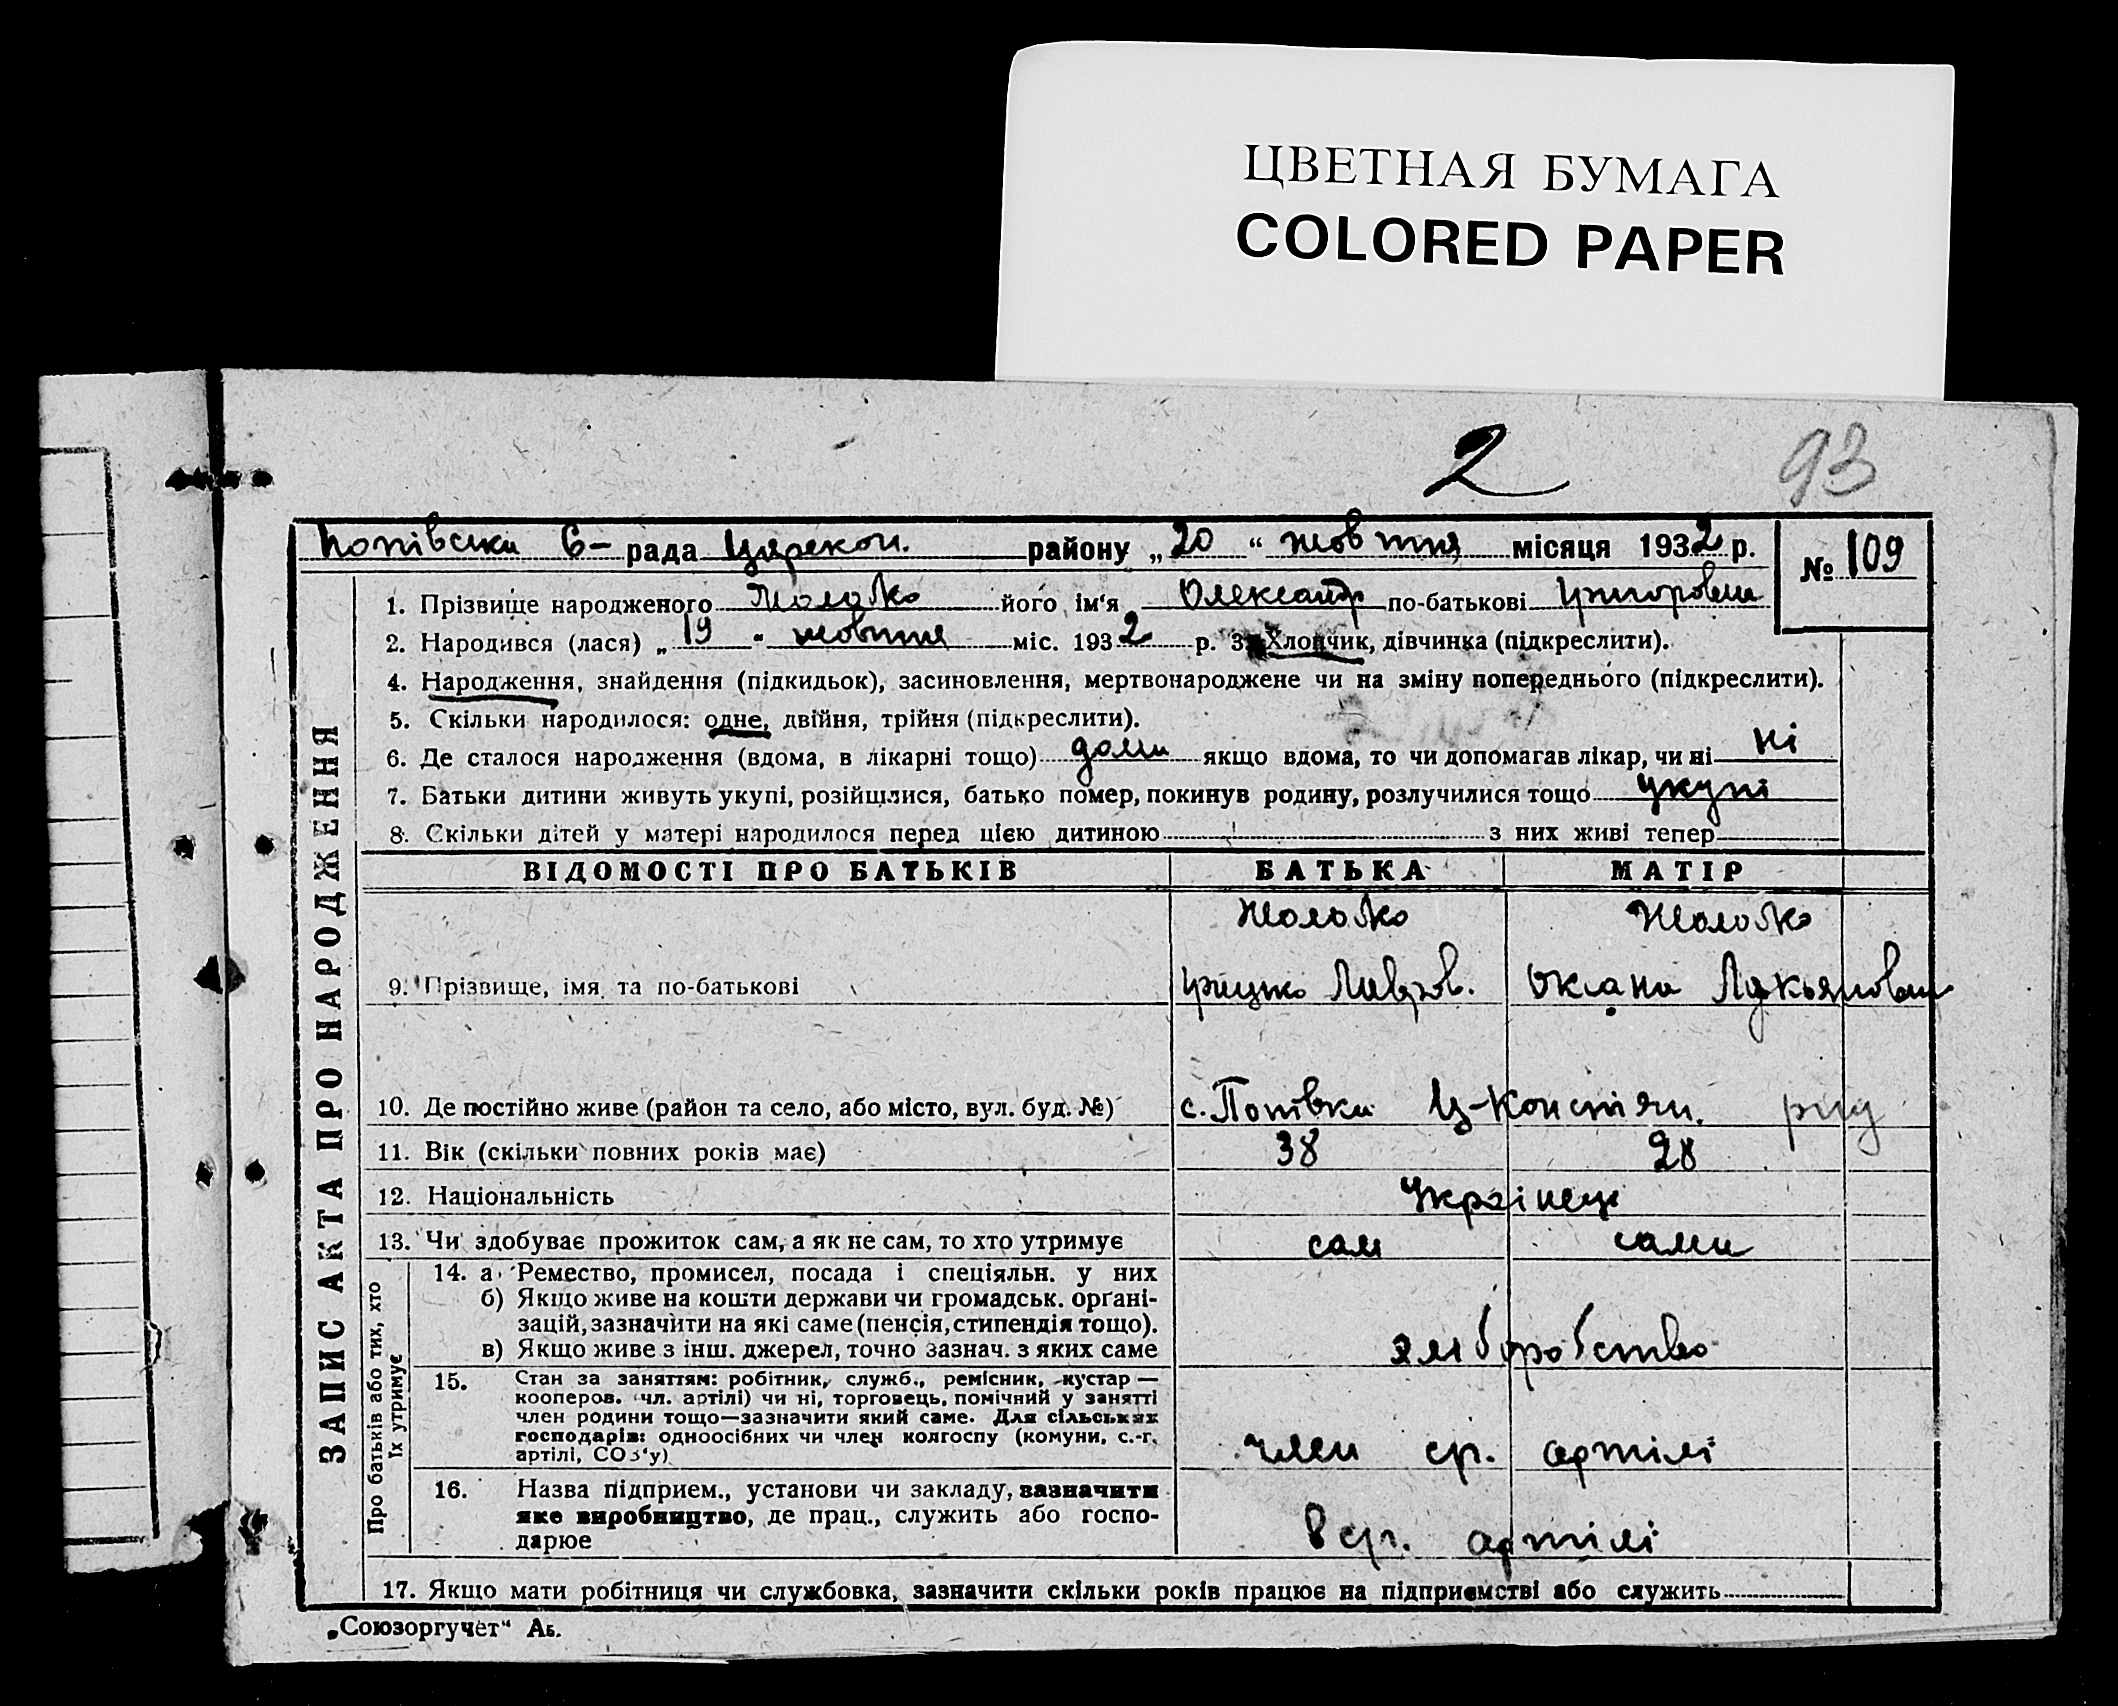 ЦВЕТНАЯ БУМАГА
COLORED PAPER
2
93
Попівська С- рада Царекон. району „20“ жовтня місяця 1932 р.
№ 109
1. Прізвище народженого Жолобко його ім'я Олександр по-батькові Григорович
2. Народився (лася) „19“ жовтня міс. 1932 р. 3. Хлопчик, дівчинка (підкреслити).
4. Народження, знайдення (підкидьок), засиновлення, мертвонароджене чи на зміну попереднього (підкреслити).
5. Скільки народилося: одне, двійня, трійня (підкреслити).
6. Де сталося народження (вдома, в лікарні тощо) дома якщо вдома, то чи допомагав лікар, чи ні ні
7. Батьки дитини живуть укупі, розійшлися, батько помер, покинув родину, розлучилися тощо укупі
8. Скільки дітей у матері народилося перед цією дитиною з них живі тепер
ВІДОМОСТІ ПРО БАТЬКІВ БАТЬКА МАТІР
9. Прізвище, імя та по-батькові
Грицько Лавров. Оксана
10. Де постійно живе (район та село, або місто, вул. буд. №) с. Попівка Ц-Констян. рну
11. Вік (скільки повних років має) 38 28
12. Національність Українець
13. Чи здобуває прожиток сам, а як не сам, то хто утримує сам сами
14. а) Ремество, промисел, посада і спеціяльн. у них
б) Якщо живе на кошти держави чи громадськ. орґані-
зацій, зазначити на які саме (пенсія, стипендія тощо).
в) Якщо живе з інш. джерел, точно зазнач. з яких саме
хліборобство
15. Стан за заняттям: робітник, служб., ремісник, кустар —
кооперов. чл. артілі) чи ні, торговець, помічний у занятті
член родини тощо—зазначити який саме. Для сільських
господарів: одноосібних чи член колгоспу (комуни, с.-г.
артілі, СОЗ'у)
член ср. артілі
16. Назва підприєм., установи чи закладу, зазначити
яке виробництво, де прац., служить або госпо-
дарює
в ср. артілі
17. Якщо мати робітниця чи службовка, зазначити скільки років працює на підприємстві або служить
ЗАПИС АКТА ПРО НАРОДЖЕННЯ
Про батьків або тих, хто
їх утримує
„Союзоргучёт“ Аь.